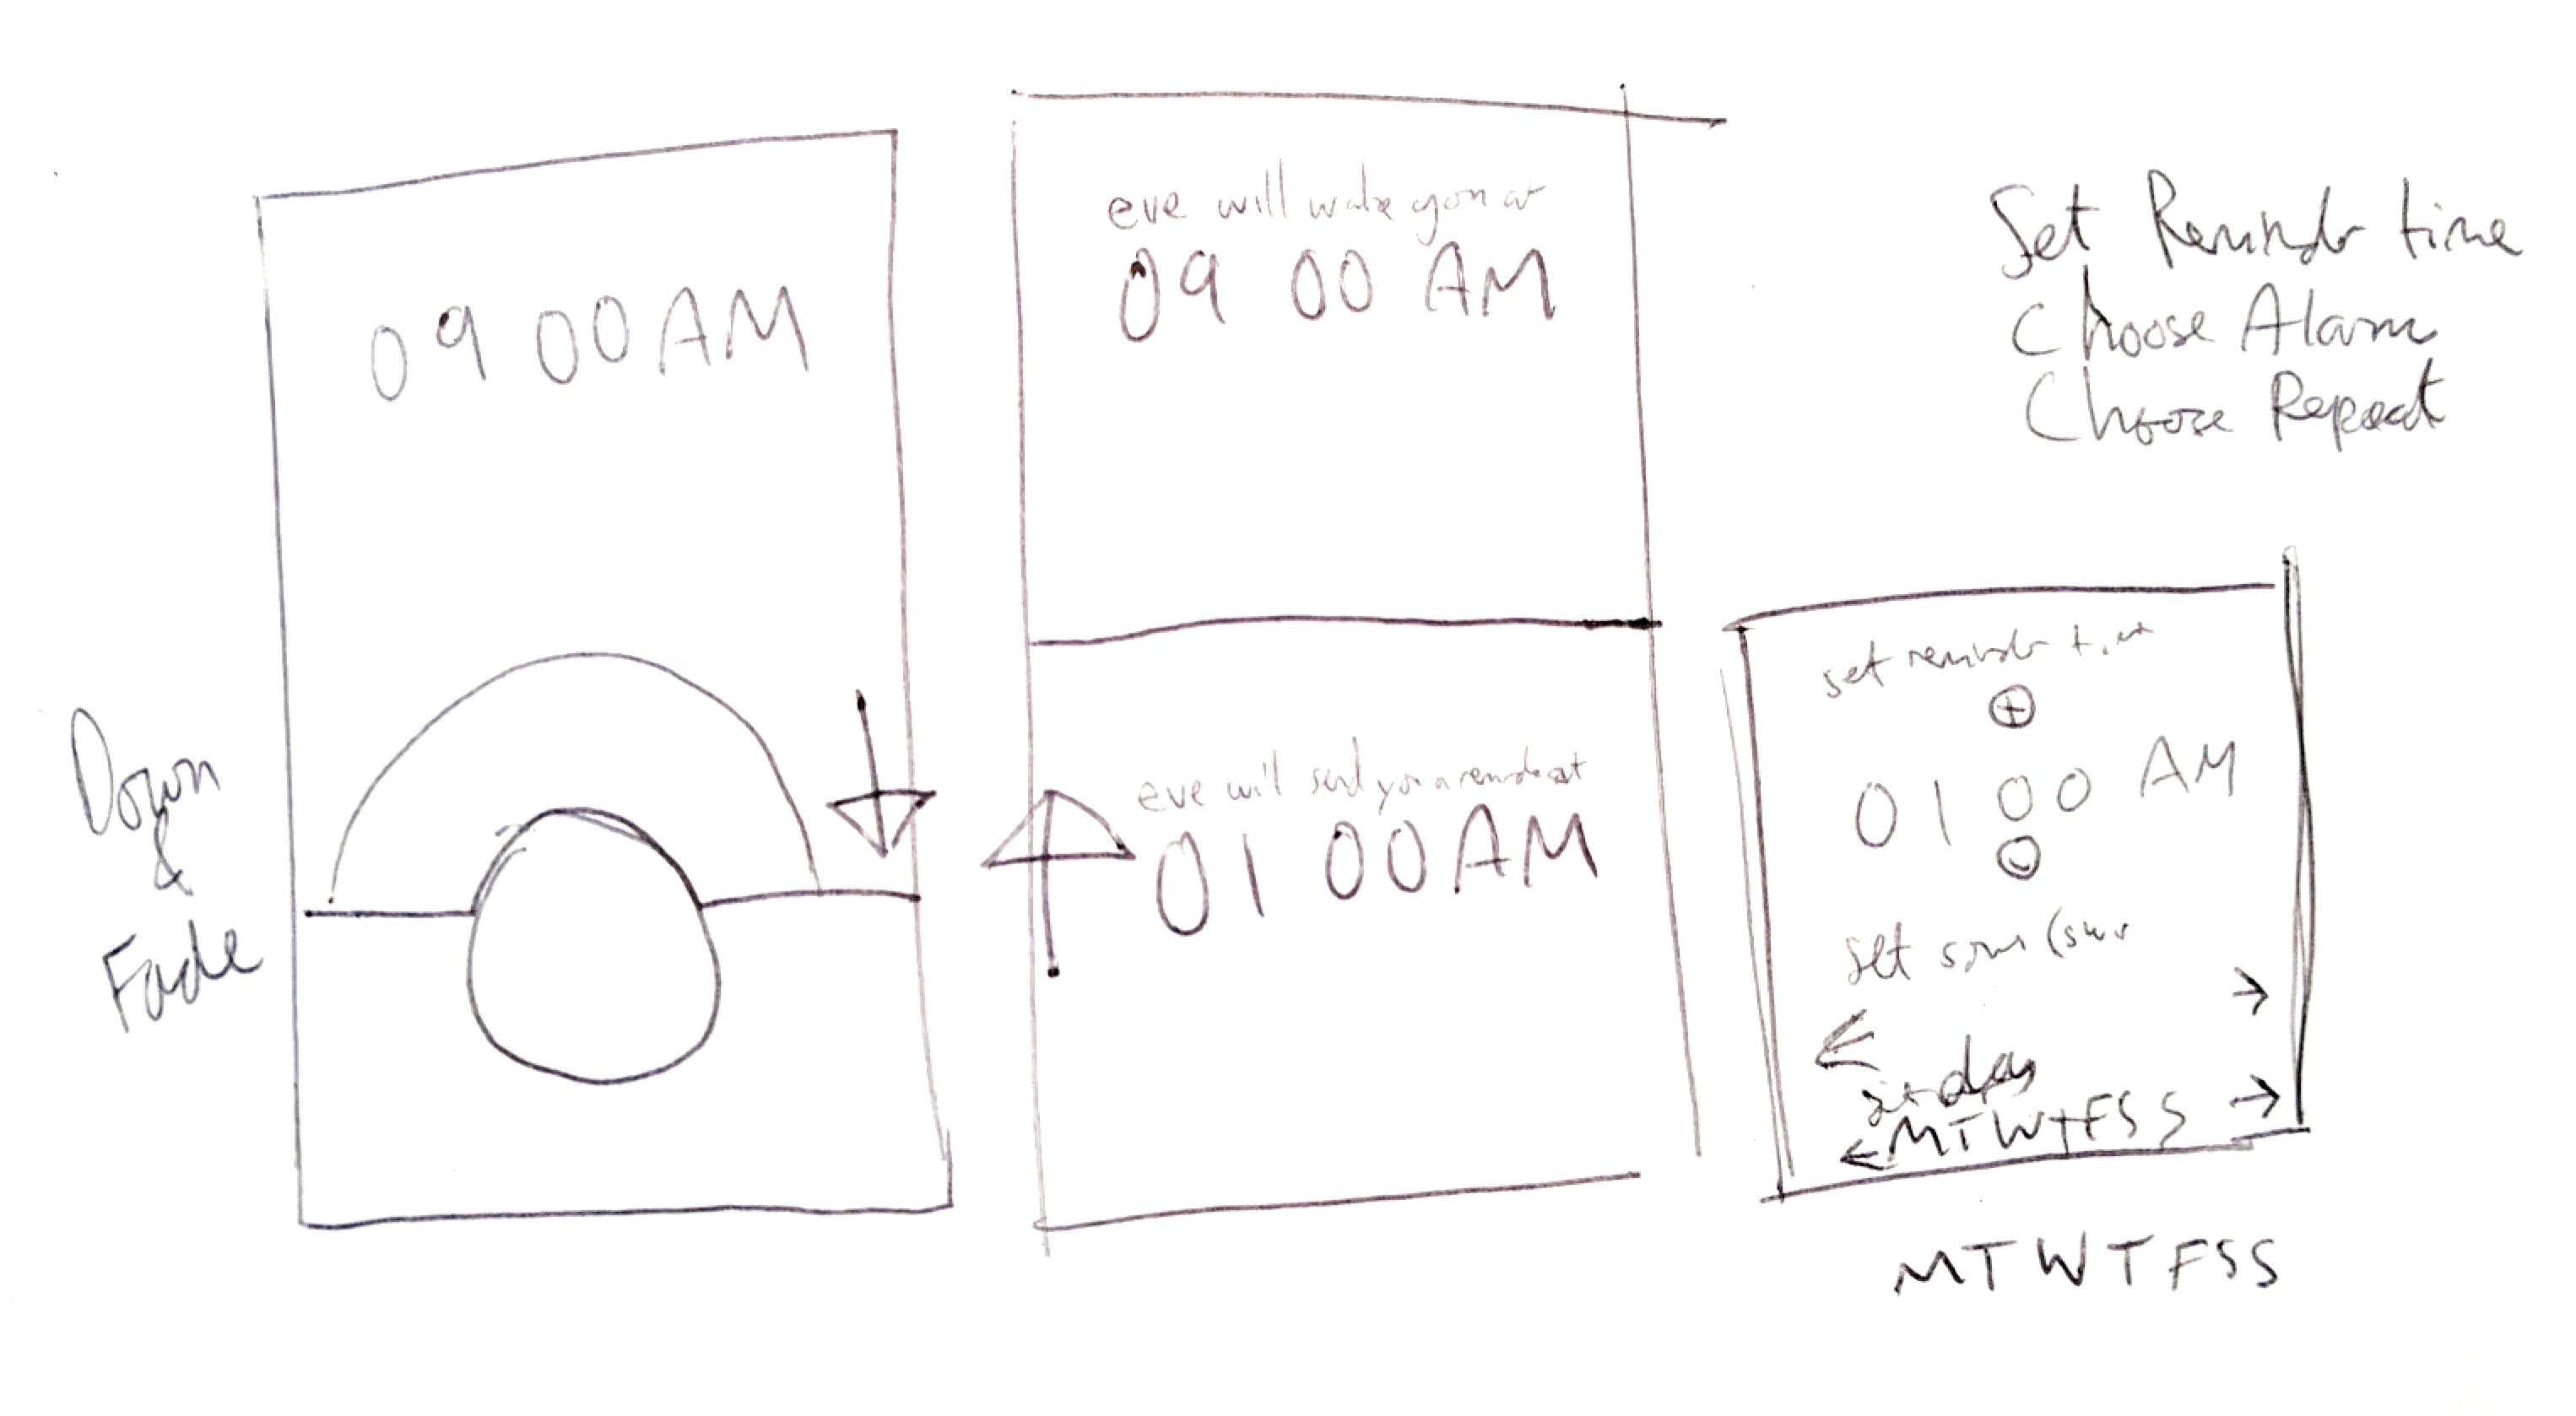 Down
&
Fade
09 00 AM
eve will wake you at
09 00 AM
eve will send you a reminder at
01 00 AM
Set Reminder time
Choose Alarm
Choose Repeat
set reminder time
+
01 00 AM
-
set
days
MTWTFSS
MTWTFSS